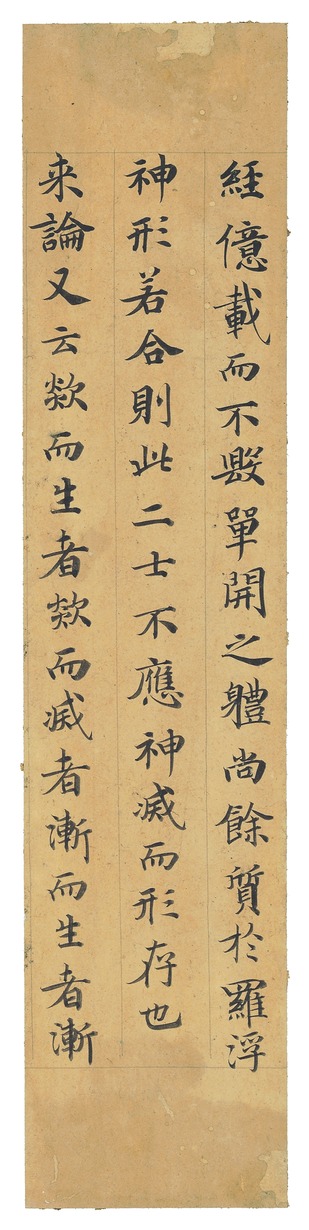 經億載而不毀單開之軆尚餘質於羅浮
神形若合則此二士不應神滅而形存也
来論又云欻而生者欻而滅者漸而生者漸